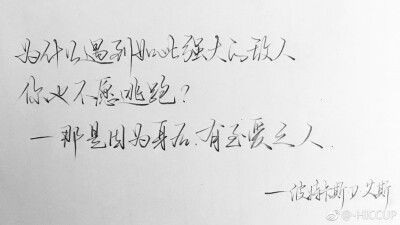 为什么遇到如此强大的敌人
你也不愿逃跑?
—那是因为身后,有至爱之人.
—波特卡斯D艾斯
@-HICCUP